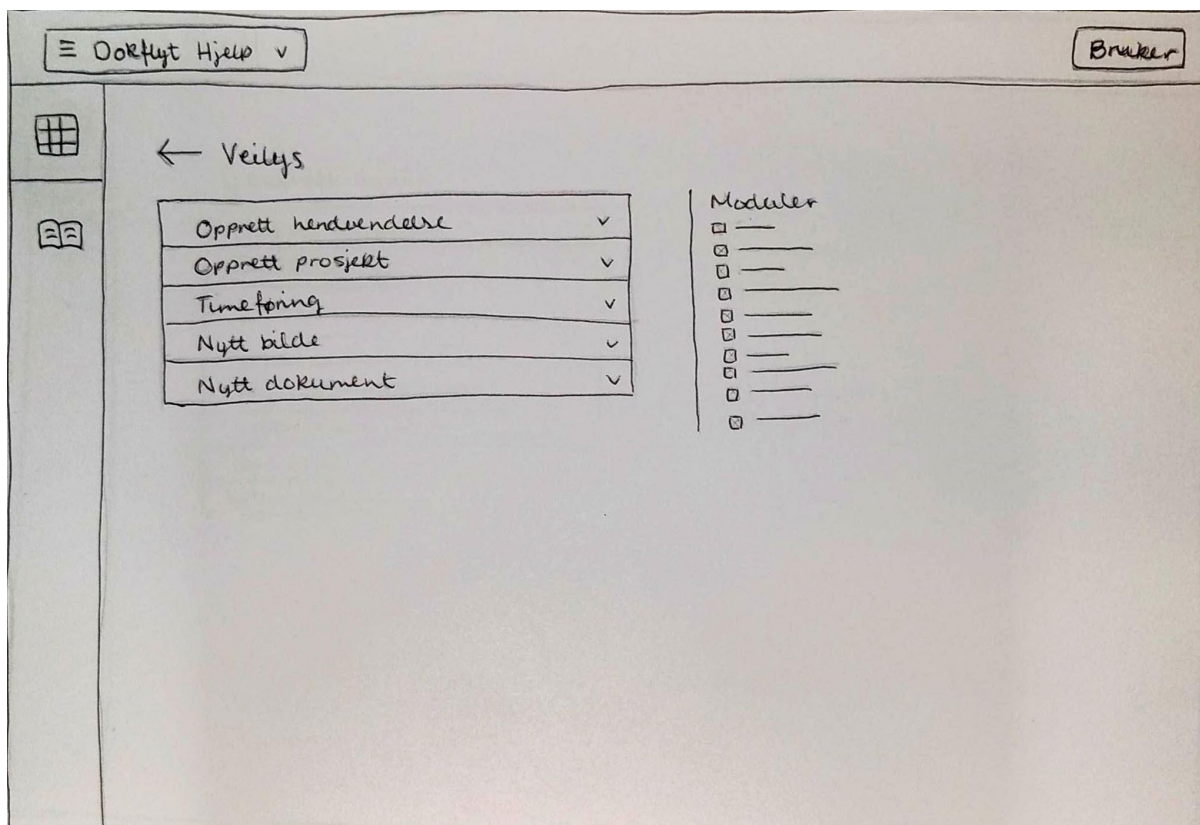 Dokflyt Hjelp
Bruker
Veilys
Opprett hendvendelse
Opprett prosjekt
Timeføring
Nytt bilde
Nytt dokument
Moduler